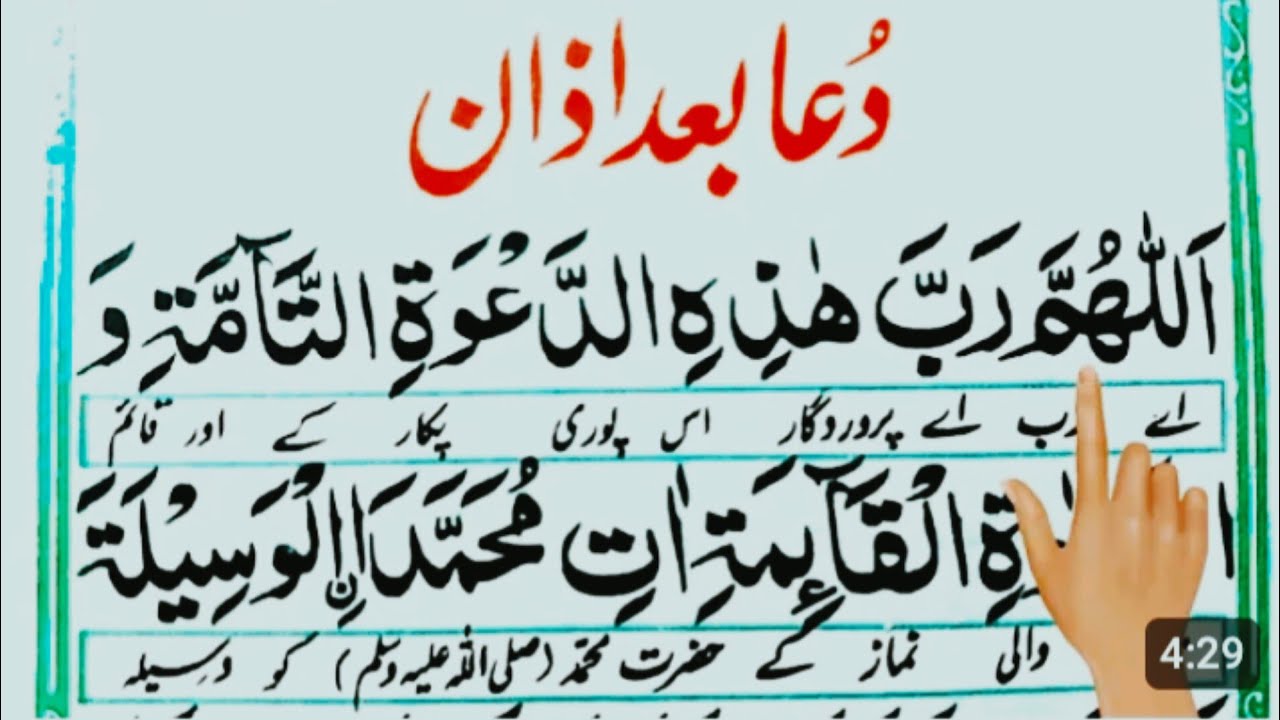 دُعا بعد اذان
اَللّٰهُمَّ رَبَّ هٰذِهِ الدَّعْوَةِ التَّآمَّةِ وَ
اے رب اے پروردگار اس پوری پکار کے اور قائم
الْقَآئِمَةِ اٰتِ مُحَمَّدَ اِنِ الْوَسِيْلَةَ
والی نماز کے حضرت محمّد (صلی اللہ علیہ وسلم) کو وسیلہ
4:29